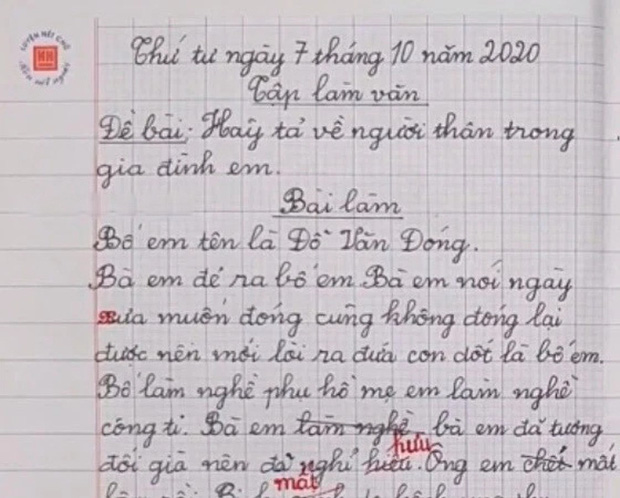 LUYỆN NÉT CHỮ
RÈN NẾT NGƯỜI
Thứ tư ngày 7 tháng 10 năm 2020
Tập làm văn
Đề bài: Hãy tả về người thân trong
gia đình em.
Bài làm
Bố em tên là Đỗ Văn Đóng.
Bà em đẻ ra bố em. Bà em nói ngày
xưa muốn đóng cũng không đóng lại
được nên mới lòi ra đứa con dốt là bố em.
Bố làm nghề phu hồ mẹ em làm nghề
công ti. Bà em làm nghề bà em đã tương
hưu
đối già nên đã nghỉ hiêu. Ông em chết mất
mất